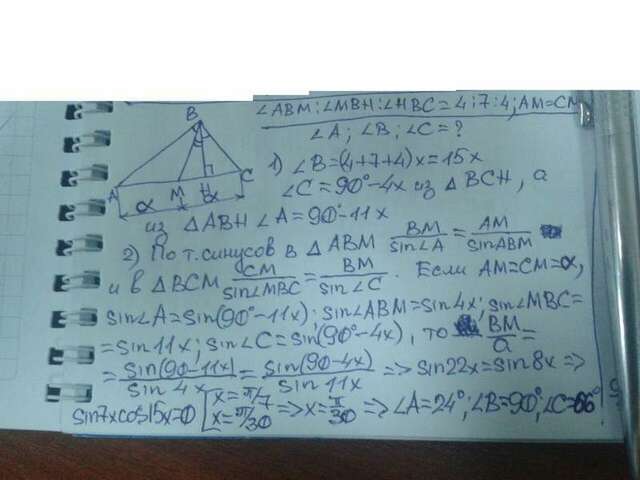 ∠ABM:∠MBH:∠HBC=4:7:4; AM=CM
∠A; ∠B; ∠C=?
B
A M H C
α α
1) ∠B=(4+7+4)x=15x
∠C=90°-4x из △BCH, а
из △ABH ∠A=90°-11x
2) По т.синусов в △ABM BM/sin∠A = AM/sinABM
и в △BCM CM/sin∠MBC = BM/sin∠C. Если AM=CM=α,
sin∠A=sin(90°-11x); sin∠ABM=sin4x; sin∠MBC=
=sin11x; sin∠C=sin(90°-4x), то BM/a =
= sin(90-11x)/sin4x = sin(90-4x)/sin11x => sin22x=sin8x =>
sin7xcos15x=0 [x=π/7 x=π/30 => x=π/30 => ∠A=24°; ∠B=90°; ∠C=66°